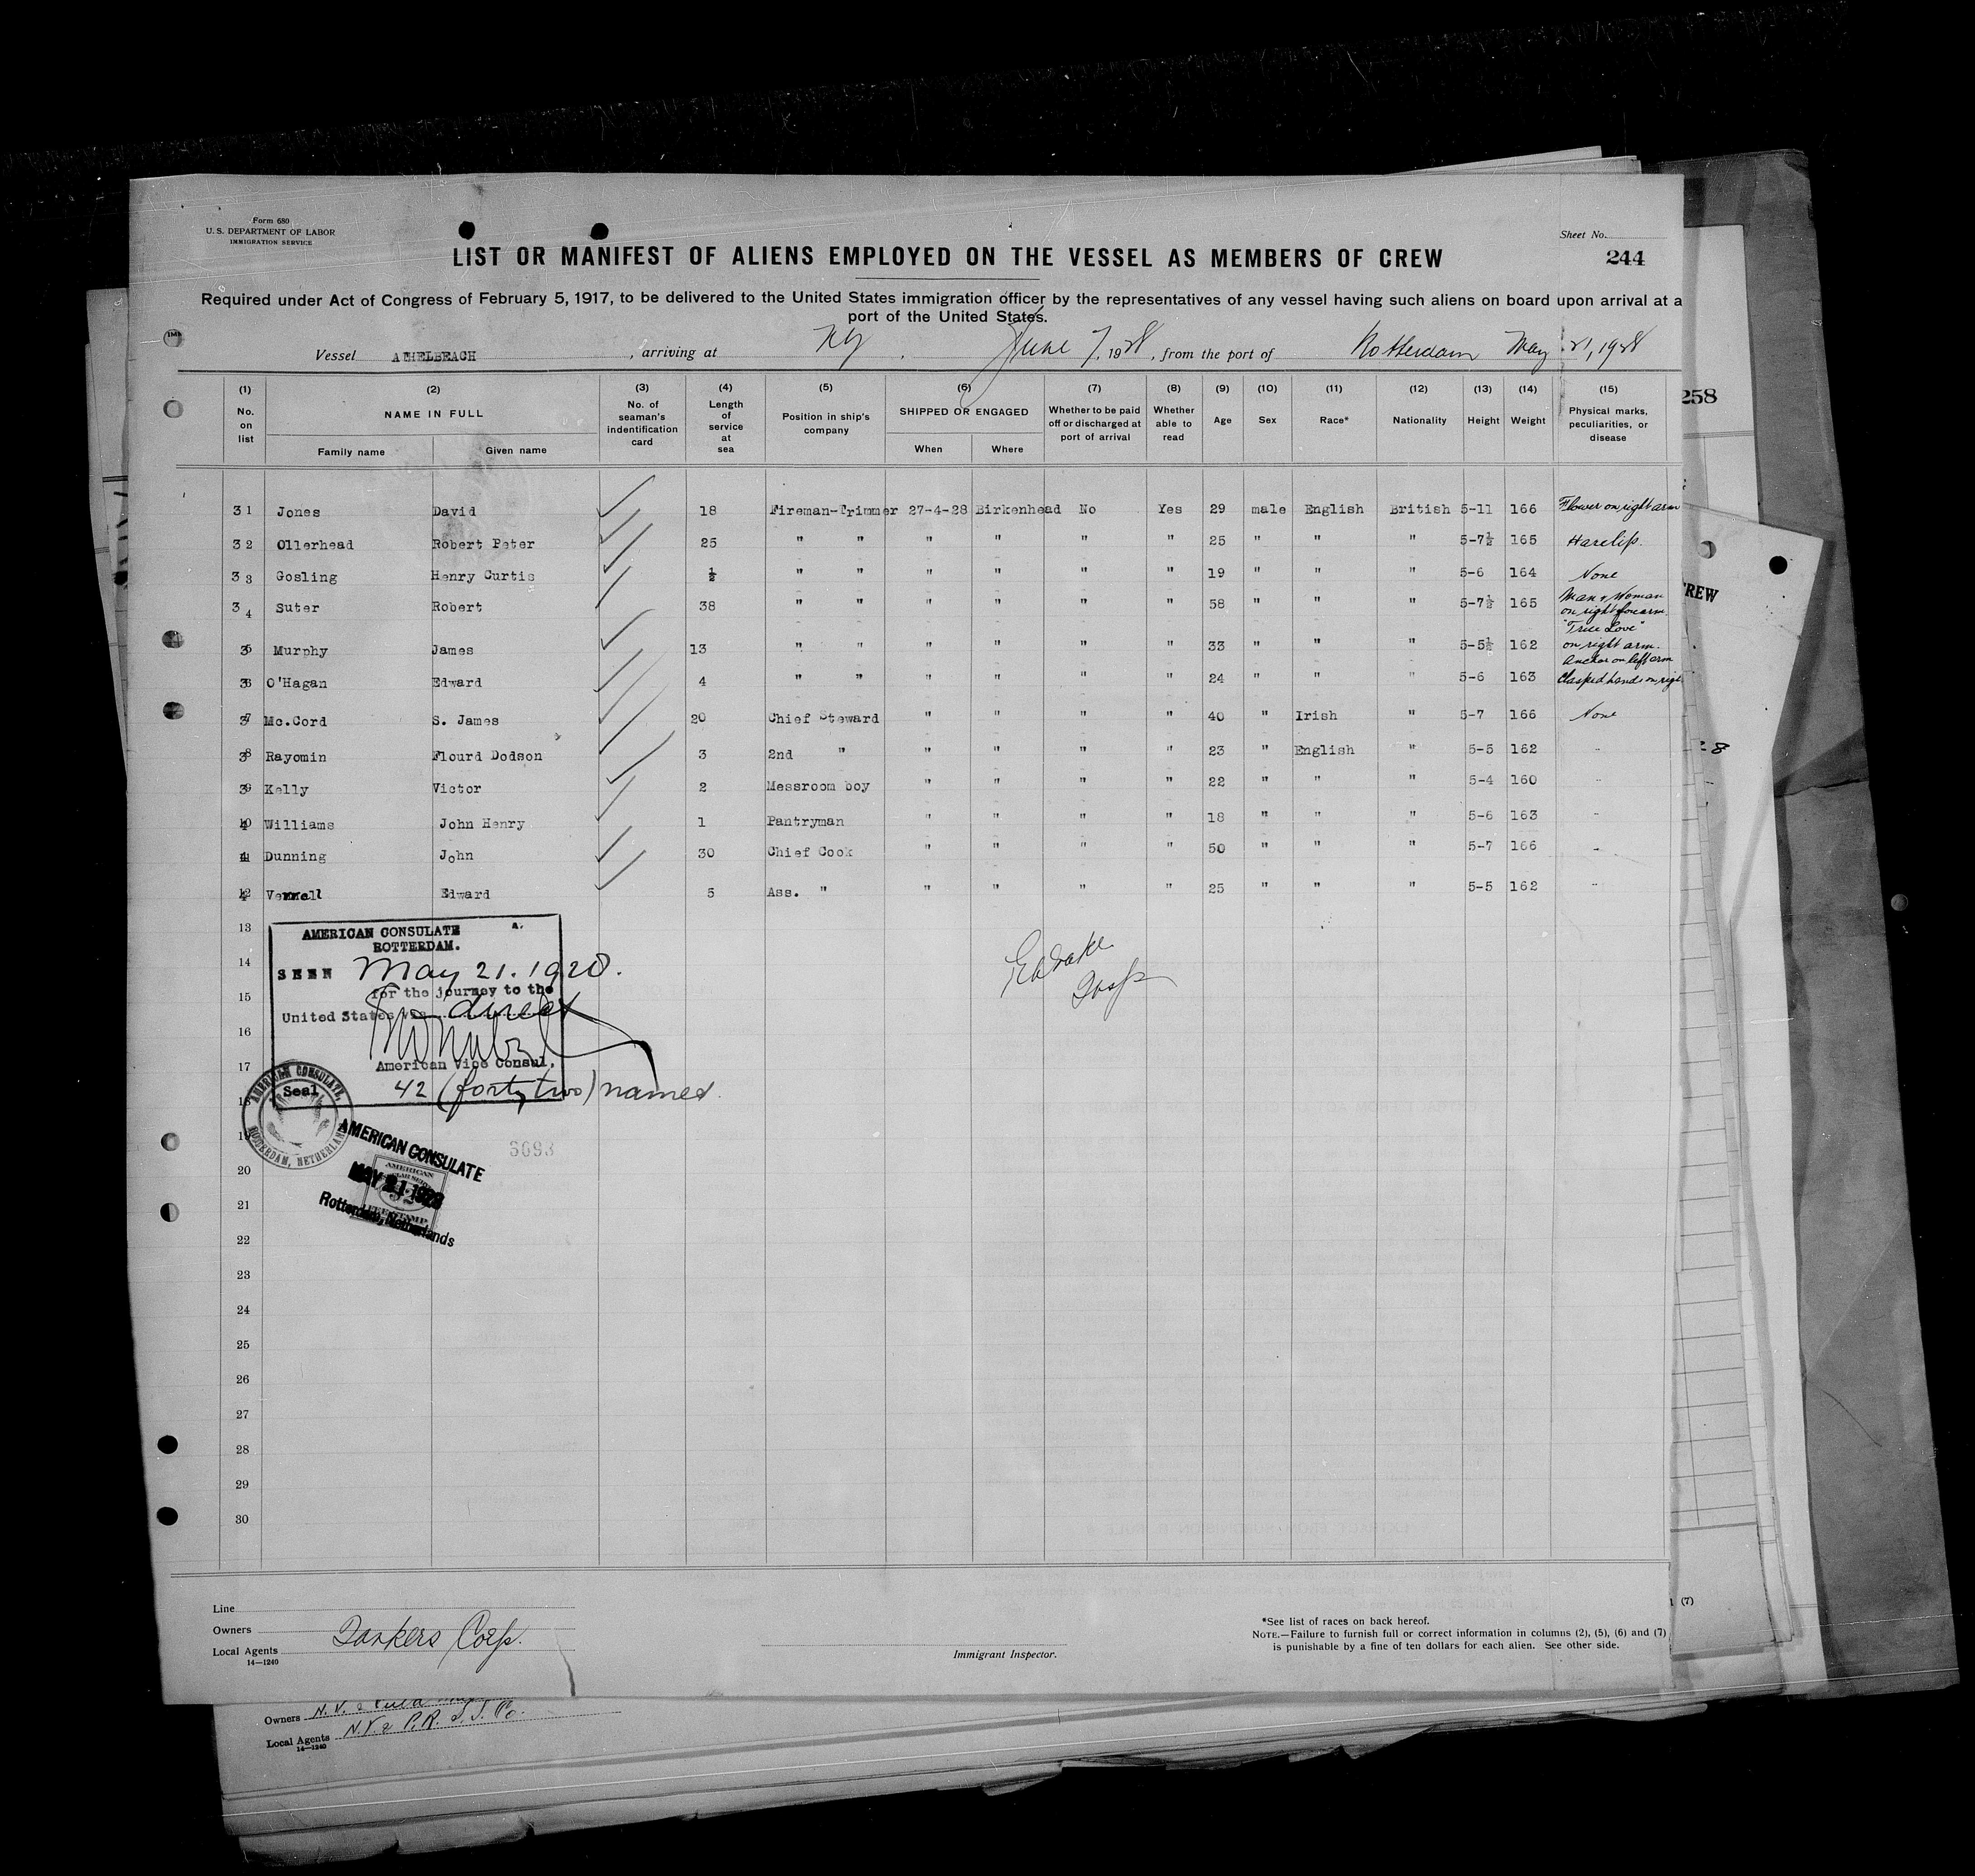 Form 680
U. S. DEPARTMENT OF LABOR
IMMIGRATION SERVICE
Sheet No.
LIST OR MANIFEST OF ALIENS EMPLOYED ON THE VESSEL AS MEMBERS OF CREW
244
Required under Act of Congress of February 5, 1917, to be delivered to the United States immigration officer by the representatives of any vessel having such aliens on board upon arrival at a
port of the United States.
Vessel ATHELBEACH, arriving at NY, June 7, 1928, from the port of Rotterdam May 21, 1928
(1) (2) (3) (4) (5) (6) (7) (8) (9) (10) (11) (12) (13) (14) (15)
No. on list NAME IN FULL No. of seaman's indentification card Length of service at sea Position in ship's company SHIPPED OR ENGAGED Whether to be paid off or discharged at port of arrival Whether able to read Age Sex Race* Nationality Height Weight Physical marks, peculiarities, or disease
Family name Given name When Where
31 Jones David 18 Fireman-Trimmer 27-4-28 Birkenhead No Yes 29 male English British 5-11 166 Flower on right arm
32 Ollerhead Robert Peter 25 " " " " " " 25 " " " 5-7½ 165 Harelip.
33 Gosling Henry Curtis ½ " " " " " " 19 " " " 5-6 164 None
34 Suter Robert 38 " " " " " " 58 " " " 5-7½ 165 Man & Woman on right forearm
35 Murphy James 13 " " " " " " 33 " " " 5-5½ 162 "True Love" on right arm. Anchor on left arm
36 O'Hagan Edward 4 " " " " " " 24 " " " 5-6 163 Clasped hands on righ
37 Mc.Cord S. James 20 Chief Steward " " " " 40 " Irish " 5-7 166 None
38 Rayomin Flourd Dodson 3 2nd " " " " " 23 " English " 5-5 162 "
39 Kelly Victor 2 Messroom boy " " " " 22 " " " 5-4 160 "
40 Williams John Henry 1 Pantryman " " " " 18 " " " 5-6 163 "
41 Dunning John 30 Chief Cook " " " " 50 " " " 5-7 166 "
42 Vennell Edward 5 Ass. " " " " " 25 " " " 5-5 162 "
13
14
15
16
17
18
19
20
21
22
23
24
25
26
27
28
29
30
AMERICAN CONSULATE
ROTTERDAM.
SEEN May 21. 1928.
for the journey to the
United States via direct
American Vice Consul.
Seal
42 (forty two) names.
AMERICAN CONSULATE, ROTTERDAM, NETHERLAND
AMERICAN CONSULATE
MAY 21 1928
Rotterdam, Netherlands
AMERICAN
FEE STAMP
Line
Owners
Local Agents Tankers Corp.
14—1240
Immigrant Inspector.
*See list of races on back hereof.
NOTE.—Failure to furnish full or correct information in columns (2), (5), (6) and (7)
is punishable by a fine of ten dollars for each alien. See other side.
258
REW
8
(7)
Owners N.Y. &
Local Agents N.Y. & P.R. S.S. Co.
14—1240